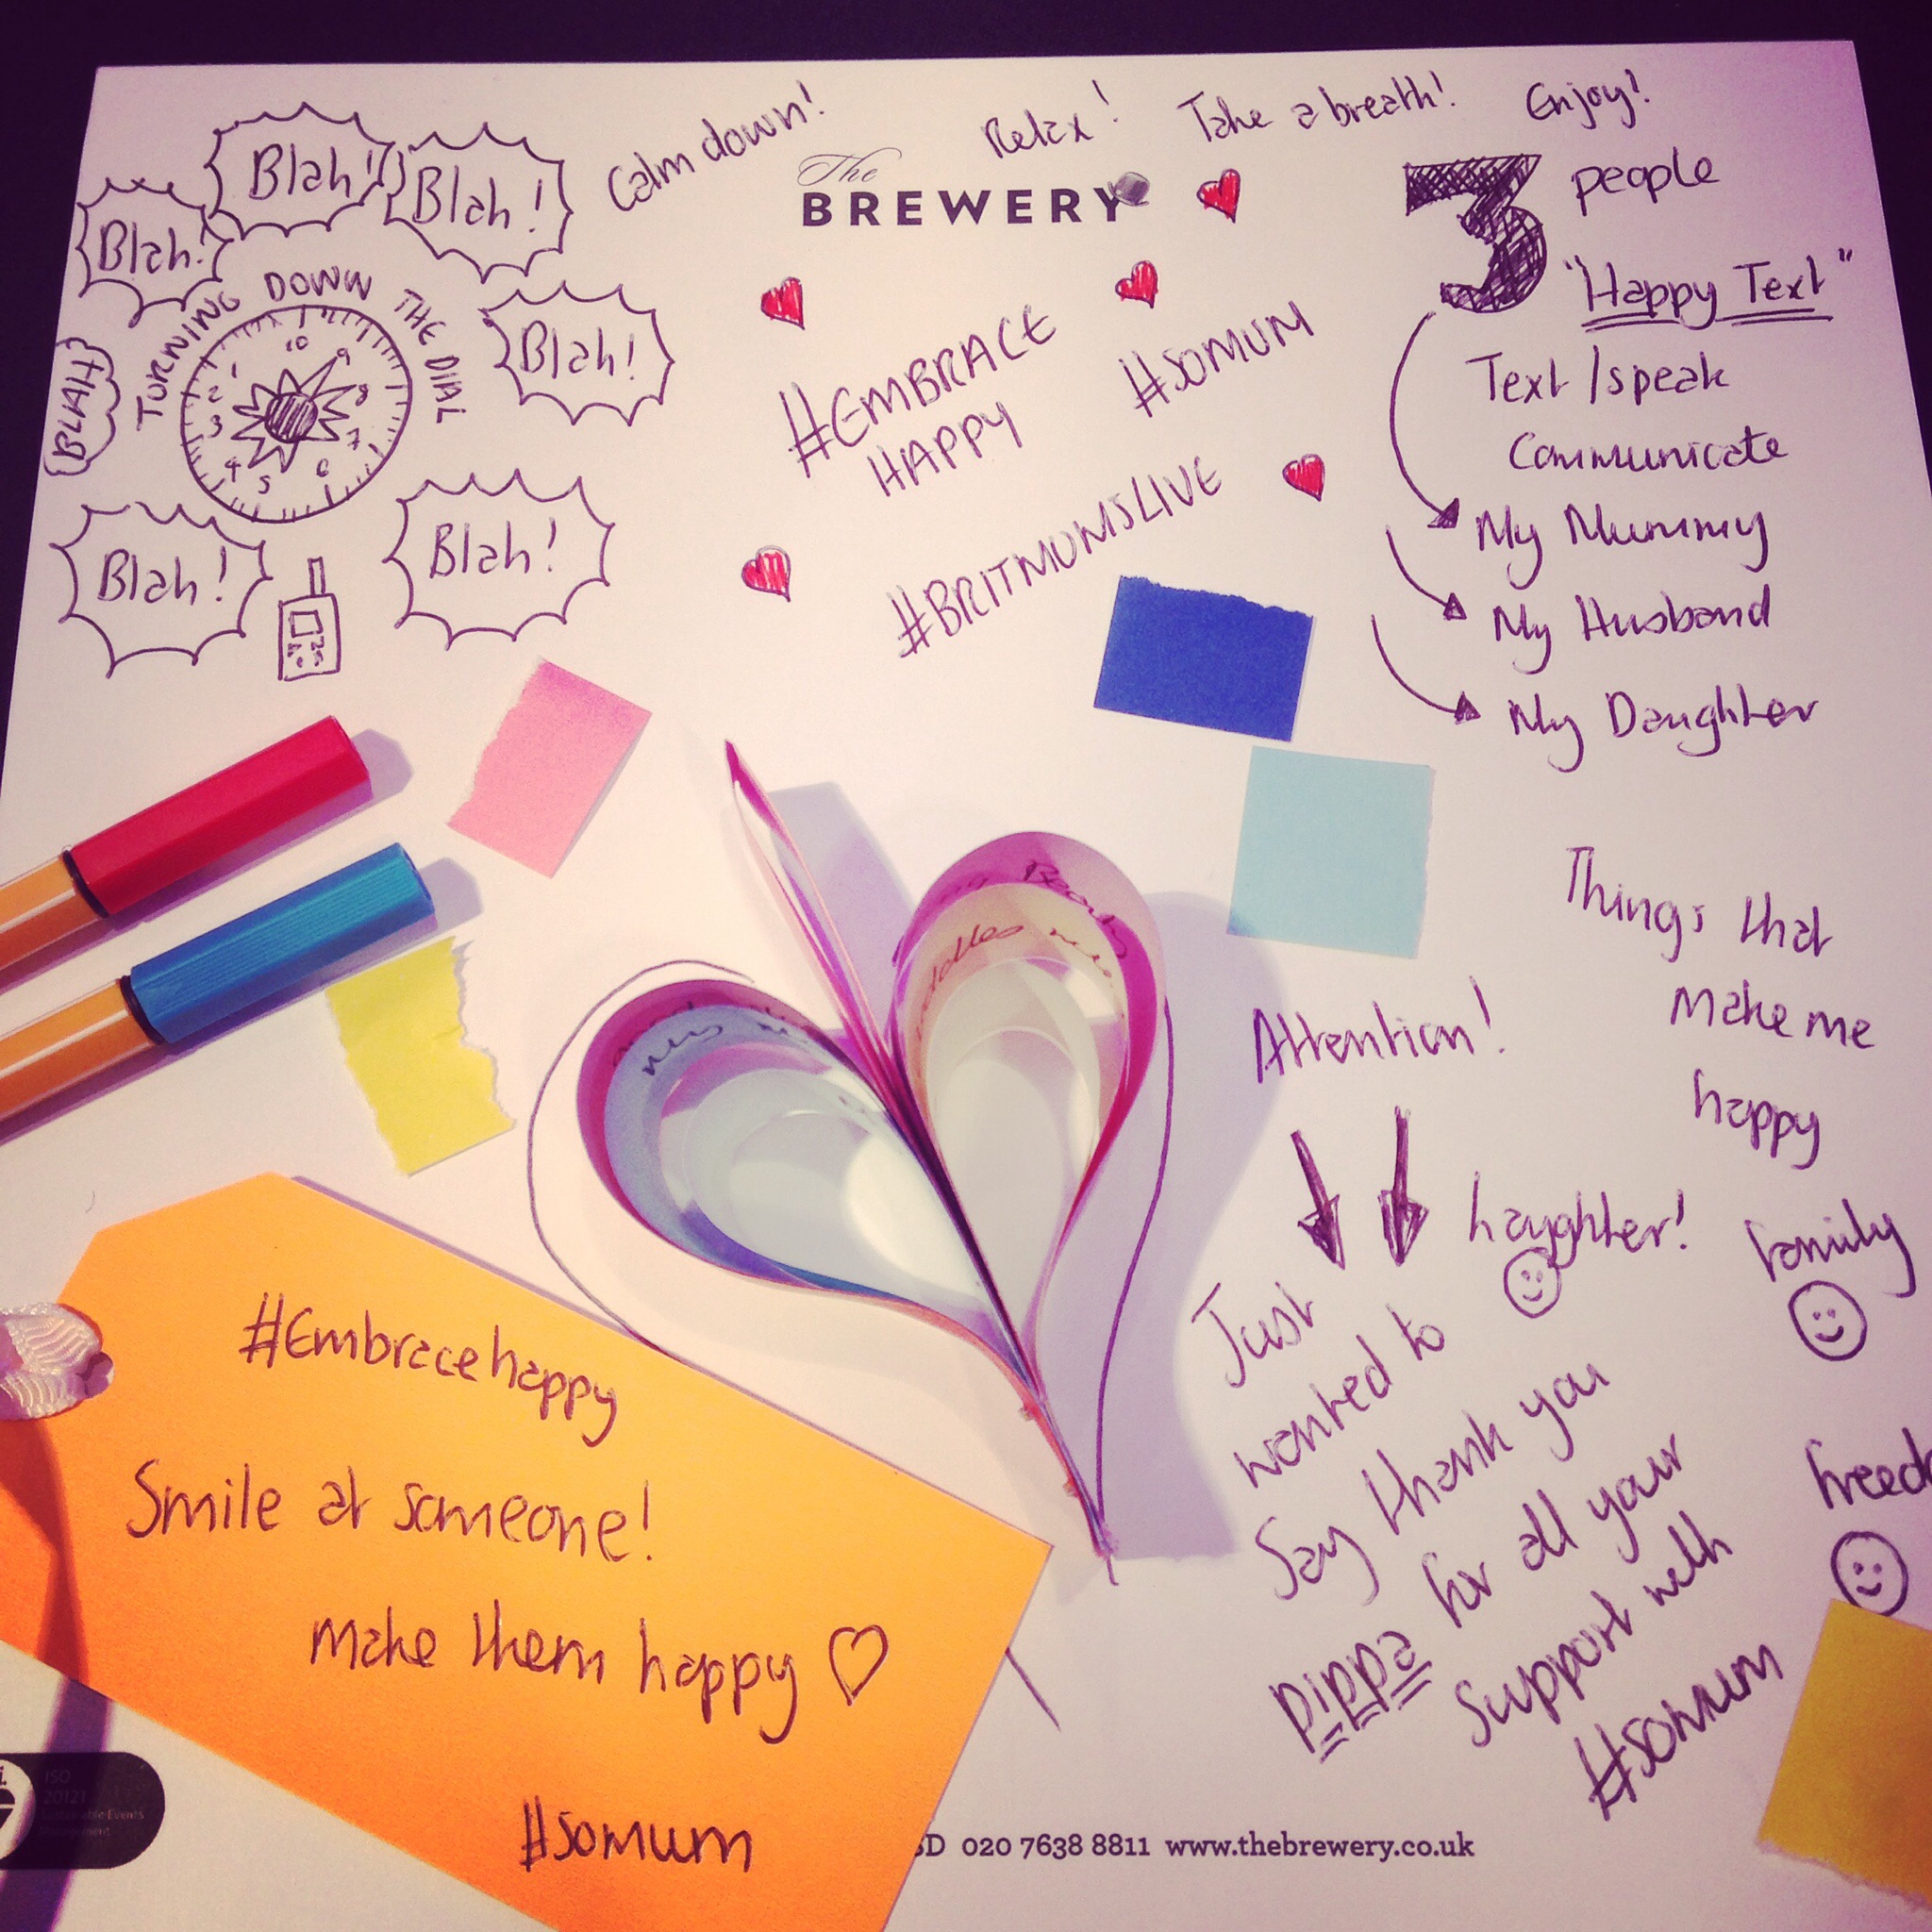 Calm down!
Relax!
Take a breath!
Enjoy!
Blah!
Blah!
Blah!
Blah!
BLAH
Blah!
Blah!
TURNING DOWN THE DIAL
10
9
8
7
6
5
4
3
2
1
The
BREWERY
#EMBRACE
HAPPY
#SOMUM
#BRITMUMSLIVE
3 people
"Happy Text"
Text/speak
Communicate
My Mummy
My Husband
My Daughter
Things that
make me
happy
family
Attention!
Just
wanted to
Say thank you
pippa for all your
support with
#somum
#Embracehappy
Smile at someone!
make them happy
#somum
ISO
20121
Sustainable Events
Management
020 7638 8811 www.thebrewery.co.uk